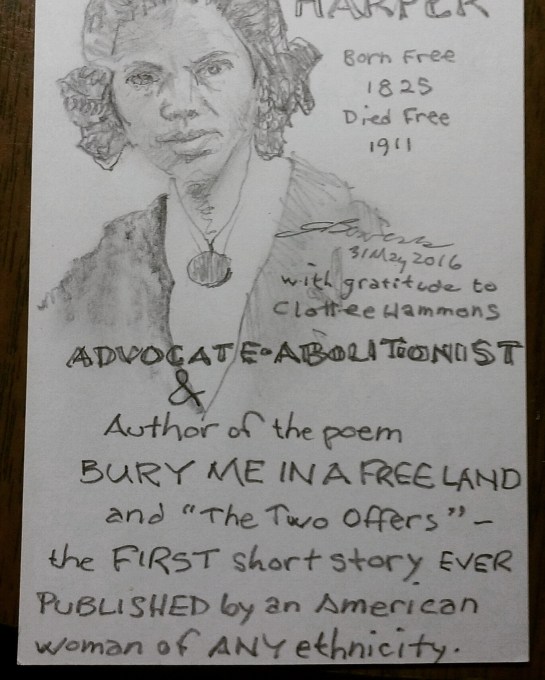 HARPER
Born Free
1825
Died Free
1911
31 May 2016
with gratitude to
Clottee Hammons
ADVOCATE-ABOLITIONIST
&
Author of the poem
BURY ME IN A FREE LAND
and "The Two Offers" -
the FIRST short story EVER
PUBLISHED by an American
woman of ANY ethnicity.